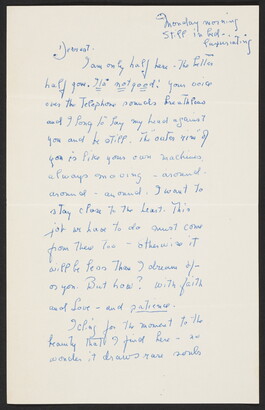 Monday morning
Still in bed -
luxuriating
Dearest.
I am only half here - the better
half gone. Its not good! Your voice
over the telephone sounds breathless
and I long to lay my head against
you and be still. The outer rim of
you is like your own machines
always moving - around -
around - around. I want to
stay close to the heart. This
job we have to do must come
from there too - otherwise it
will be less than I dream of -
or you. But how? With faith
and Love - and patience.
I cling for the moment to the
beauty that I find here - no
wonder it draws rare souls